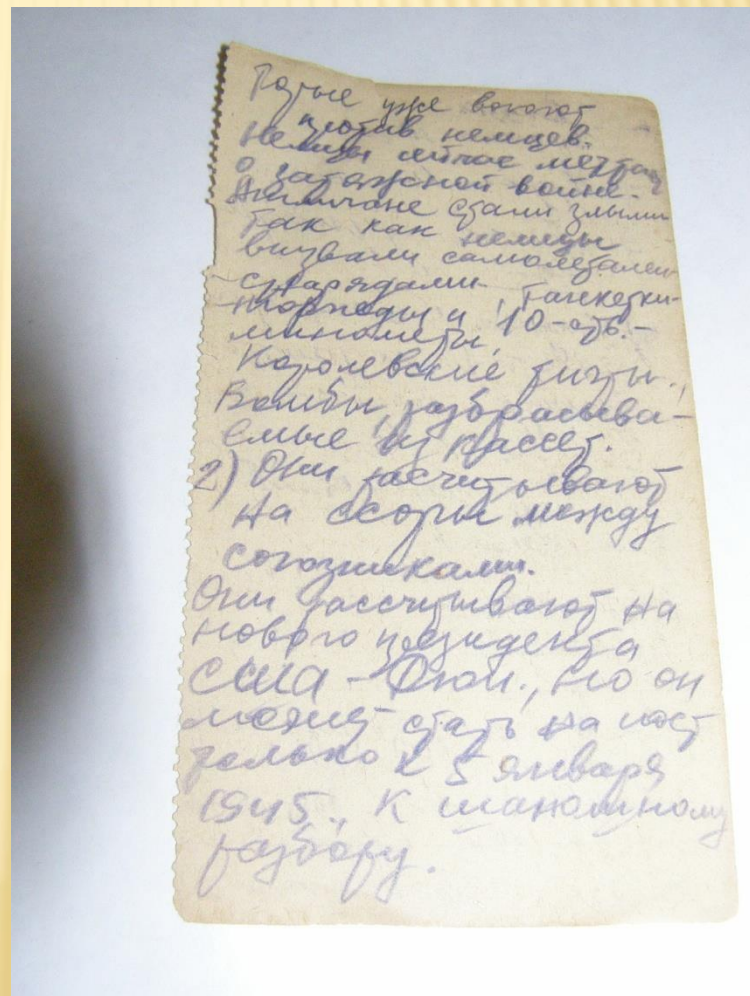 уже воюют
против немцев.
Немцы сейчас мечтают
о затяжной войне.
Англичане стали злыми
так как немцы
самолетами
снарядами. Танкетки-
торпеды и 10-ств.-
минометы,
Королевские тигры.,
Бомбы, разбрасыва-
емые из кассет.
2) Они расчитывают
на ссоры между
союзниками.
Они рассчитывают на
нового президента
США - Дюи., но он
может стать на пост
только к 5 января
1945., К
разбору.